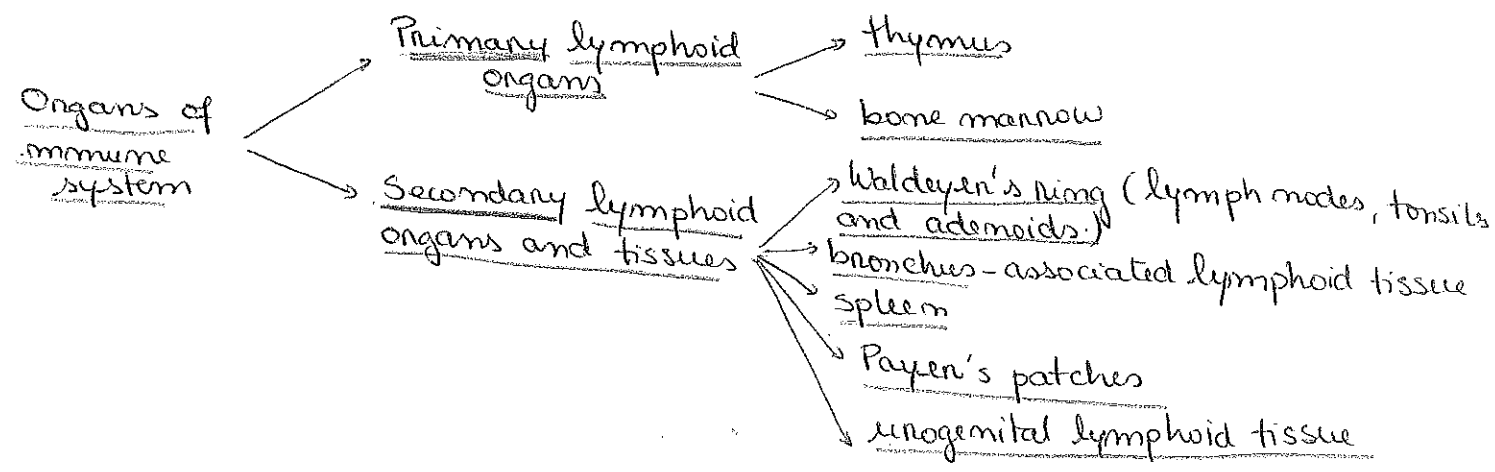 Organs of
.mmune
system
Primary lymphoid
organs
thymus
bone marrow
Secondary lymphoid
organs and tissues
Waldeyer's ring (lymph nodes, tonsils
and adenoids.)
bronchus-associated lymphoid tissue
spleen
Payer's patches
urogenital lymphoid tissue